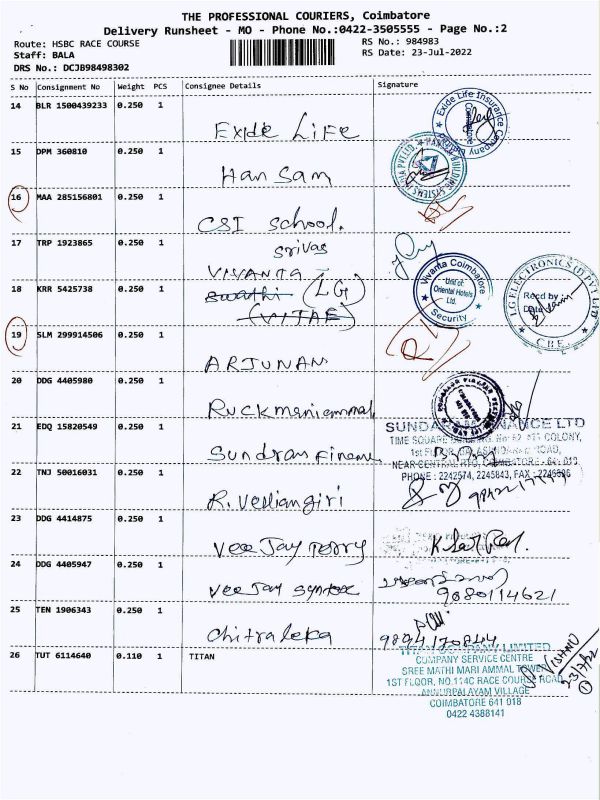 THE PROFESSIONAL COURIERS, Coimbatore
Delivery Runsheet - MO - Phone No.:0422-3505555 - Page No.:2
Route: HSBC RACE COURSE
Staff: BALA
DRS No.: DCJB98498302
RS No.: 984983
RS Date: 23-Jul-2022
S No Consignment No Weight PCS Consignee Details Signature
14 BLR 1500439233 0.250 1
Exide Life
Exide Life Insurance Company
Coimbatore
15 DPM 360810 0.250 1
Han Sam
16 MAA 285156801 0.250 1
CSI School.
17 TRP 1923865 0.250 1
Srivas
VIVANTA
Vivanta Coimbatore
Unit of:
Oriental Hotels
Ltd.
Security
18 KRR 5425738 0.250 1
Swathi (LG)
(VITAF)
LG ELECTRONICS (I) PVT LTD
Recd by
Date
CBE.
19 SLM 299914506 0.250 1
ARJUNAN
20 DDG 4405980 0.250 1
Ruckmaniammal
21 EDQ 15820549 0.250 1
Sundram Finance
SUNDARAM FINANCE LTD
TIME SQUARE COLONY,
1st FLOOR, ROAD,
NEAR CENTRAL COIMBATORE
PHONE : 2242574, 2245843, FAX
22 TNJ 50016031 0.250 1
R. Velliangiri
23 DDG 4414875 0.250 1
Vee Jay Terry
24 DDG 4405947 0.250 1
Vee Jay Syntex
9880114621
25 TEN 1906343 0.250 1
Chitraleka
9894170844
26 TUT 6114640 0.110 1 TITAN
TITAN COMPANY LIMITED
COMPANY SERVICE CENTRE
SREE MATHI MARI AMMAL TOWER
1ST FLOOR, NO.114C RACE COURSE ROAD
ANNUPPALAYAM VILLAGE
COIMBATORE 641 018
0422 4388141
VISHNU
23/7/22
1